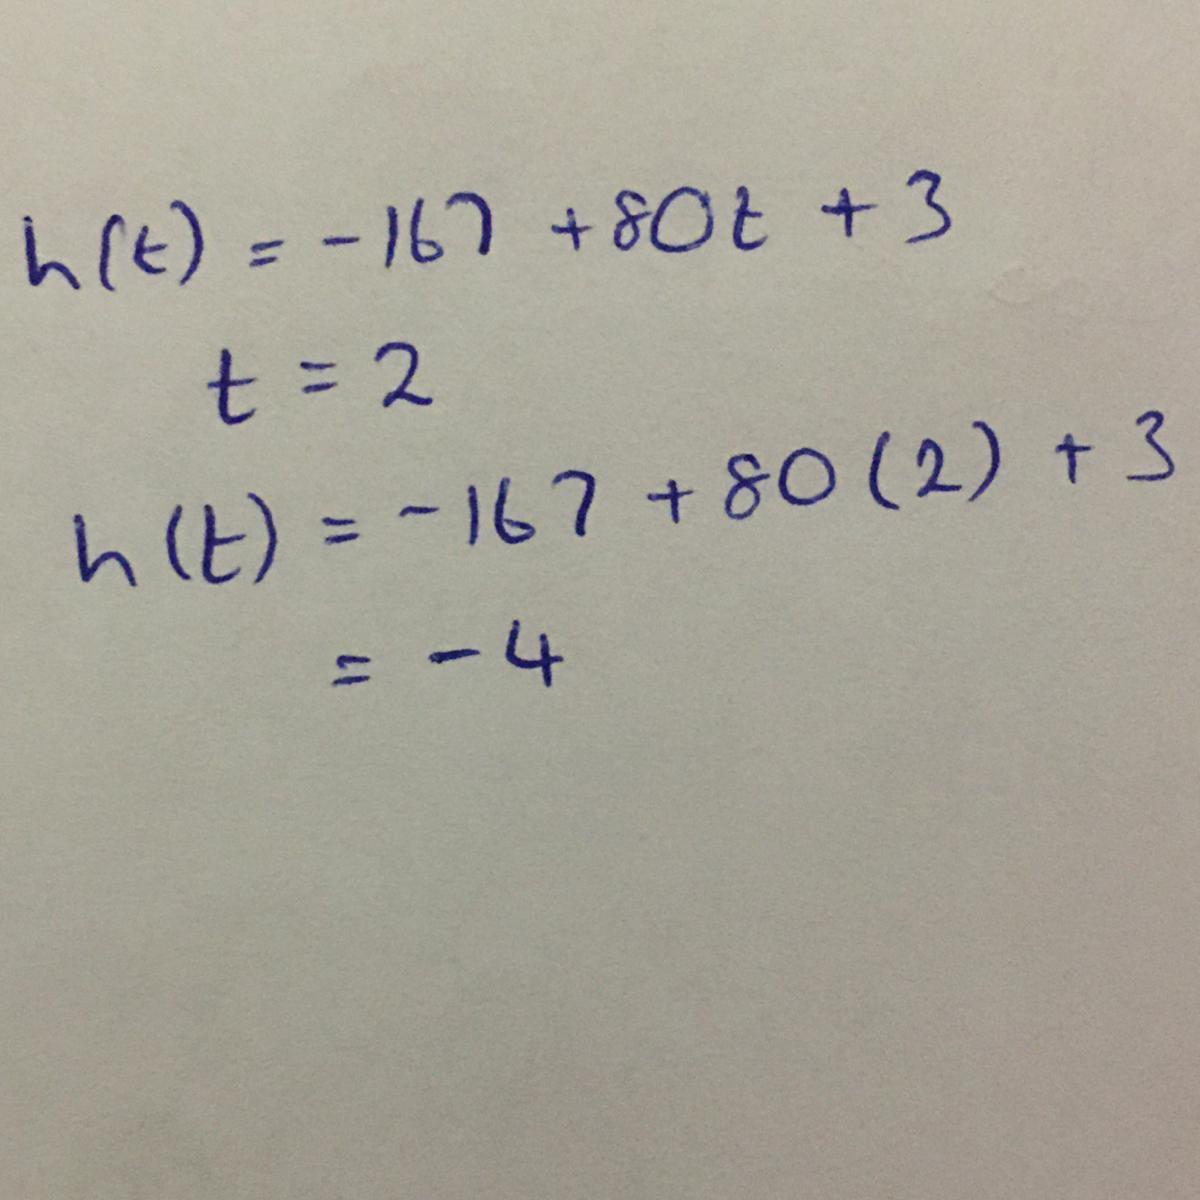 h(t) = -167 + 80t + 3
t = 2
h(t) = -167 + 80(2) + 3
= -4